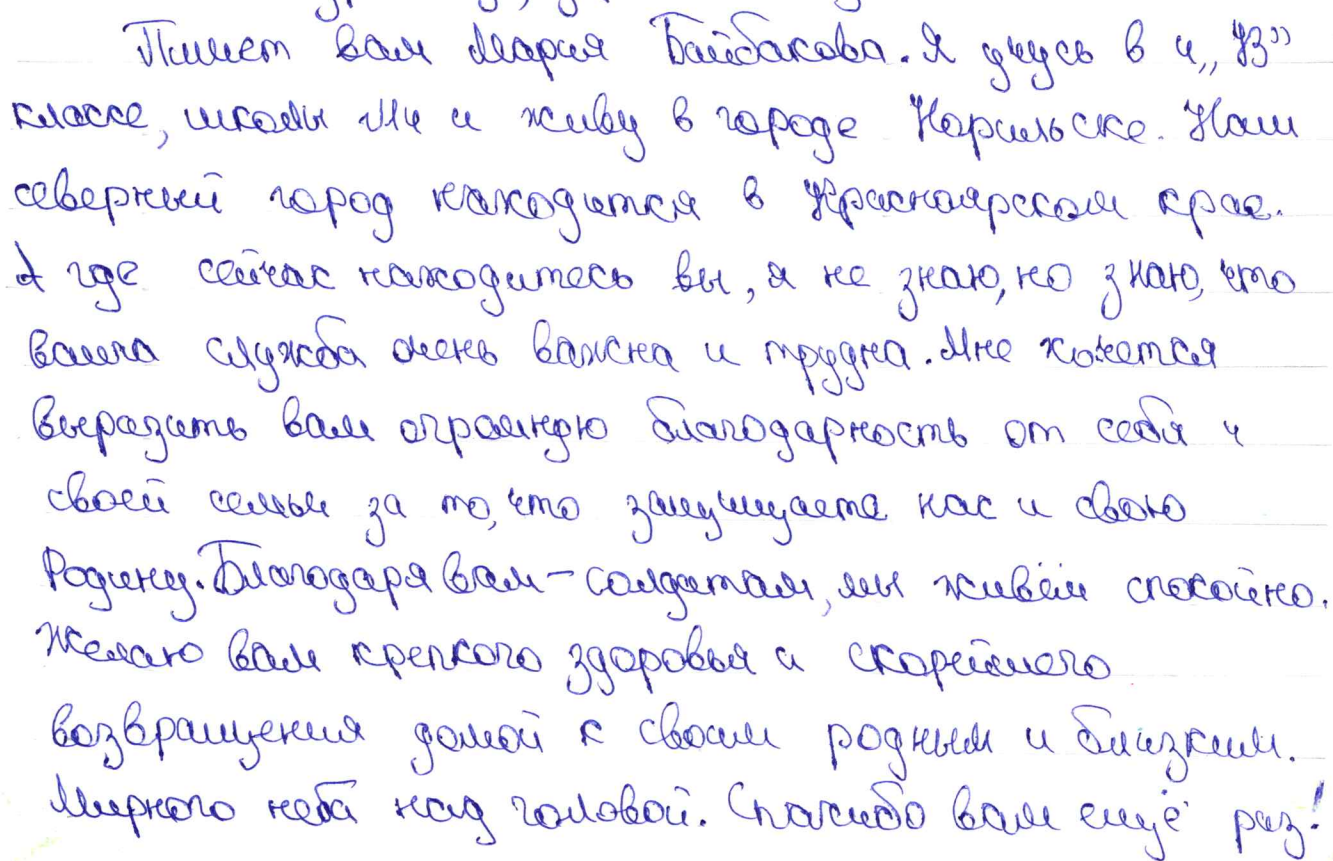 Пишет вам Мария Байбакова. Я учусь в 4 „УЗ”
классе, школы №4 и живу в городе Норильске. Наш
северный город находится в Красноярском крае.
А где сейчас находитесь вы, я не знаю, но знаю, что
ваша служба очень важна и трудна. Мне хочется
выразить вам огромную благодарность от себя и
своей семьи за то, что защищаете нас и свою
Родину. Благодаря вам – солдатам, мы живём спокойно.
Желаю вам крепкого здоровья и скорейшего
возвращения домой к своим родным и близким.
Мирного неба над головой. Спасибо вам ещё раз!